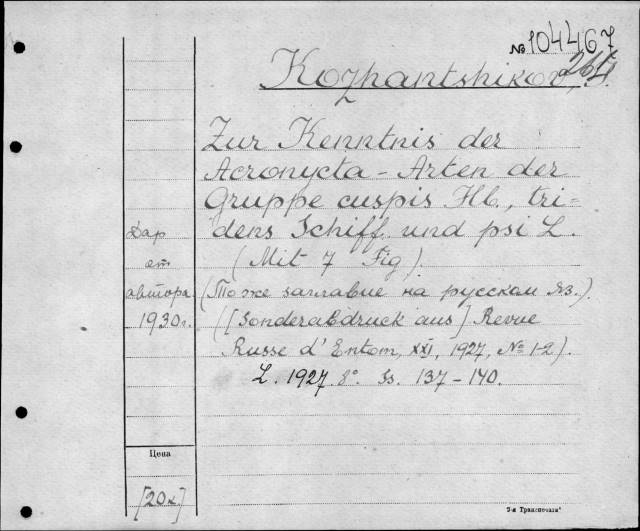 № 104467
Kozhantshikov,
Zur Kenntnis der
Acronycta-Arten der
Gruppe cuspis Hb., tri-
dens Schiff. und psi L.
(Mit 7 Fig).
(То же заглавие на русском яз.).
([Sonderabdruck aus] Revue
Russe d'Entom, XXI, 1927, № 1-2).
L. 1927. 8°. Ss. 137-140.
Дар
от
автора
1930г.
Цена
[20к.]
7-я Транспечати